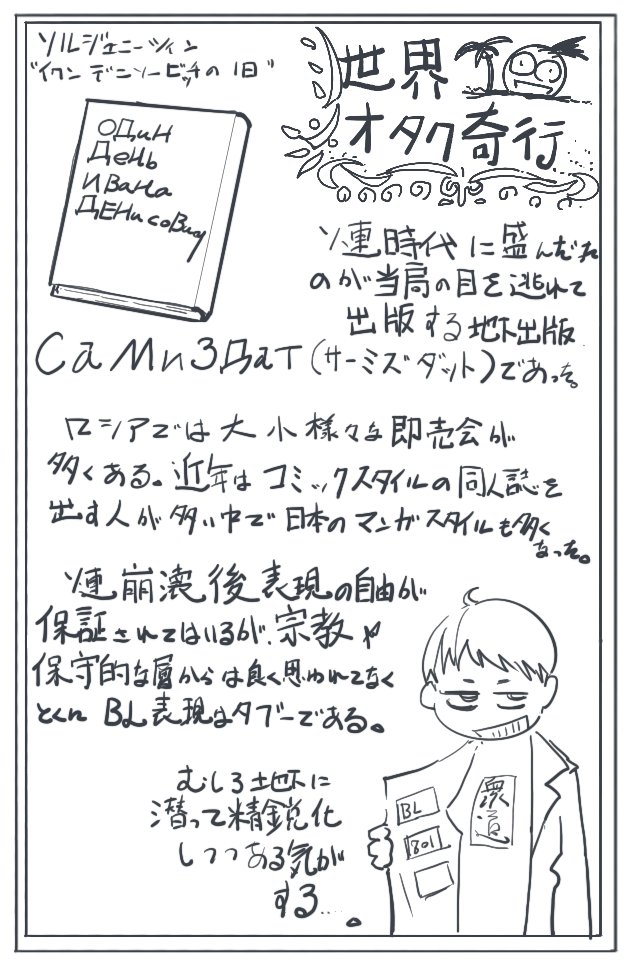 ソルジェニーツィン
"イワン デニソービッチの 1日"
один
День
ивана
ДЕНисович
世界
オタク奇行
ソ連時代に盛んだった
のが当局の目を逃れて
出版する地下出版
Самиздат(サーミズダット)であった。
ロシアでは大小様々な即売会が
多くある。近年はコミックスタイルの同人誌を
出す人が多い中で日本のマンガスタイルも多く
なった。
ソ連崩壊後表現の自由が
保証されてはいるが、宗教や
保守的な層からは良く思われてなく
とくに BL表現はタブーである。
むしろ地下に
潜って精鋭化
しつつある気が
する……。
衆道
BL
801